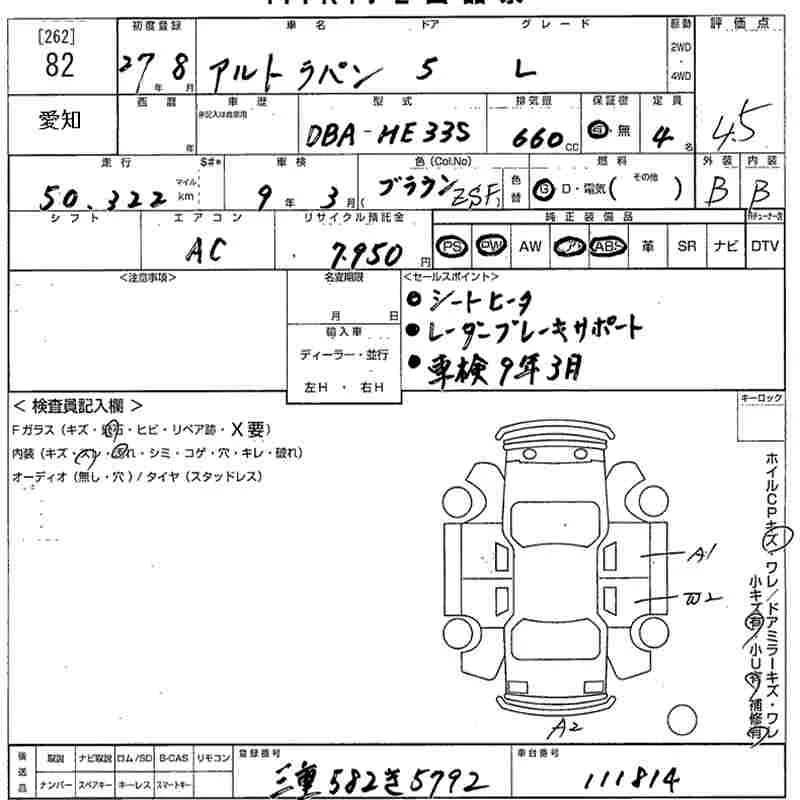 [262]
82
初度登録 車名 ドア グレード 駆動 評価点
27年 8月 アルトラパン 5 L 2WD・4WD
愛知
西暦 車歴 型式 排気量 保証書 定員
年 DBA-HE33S 660cc 有・無 4名 4.5
走行 S#* 車検 色(Col.No) 燃料 外装 内装
50,322 マイル km 9年 3月( ブラウン ZSF) 色替 G・D・電気( その他 ) B B
シフト エアコン リサイクル預託金 純正装備品
AC 7,950円 PS PW AW ABS 革 SR ナビ DTV
<注意事項> 名変期限 <セールスポイント>
月 日 ●シートヒータ
輸入車 ●レーダーブレーキサポート
ディーラー・並行 ●車検9年3月
左H ・ 右H
<検査員記入欄> キーロック
Fガラス(キズ・飛石・ヒビ・リペア跡・X要)
内装(キズ・スレ・汚れ・シミ・コゲ・穴・キレ・破れ)
オーディオ(無し・穴)/タイヤ(スタッドレス)
ホイルCPキズ・ワレ/ドアミラーキズ・ワレ
小キズ有/小U有/補修有
A1
W2
A2
後送品 取説 ナビ取説 ロム/SD B-CAS リモコン 登録番号 車台番号
ナンバー スペアキー キーレス スマートキー 三重 582 き 5792 111814